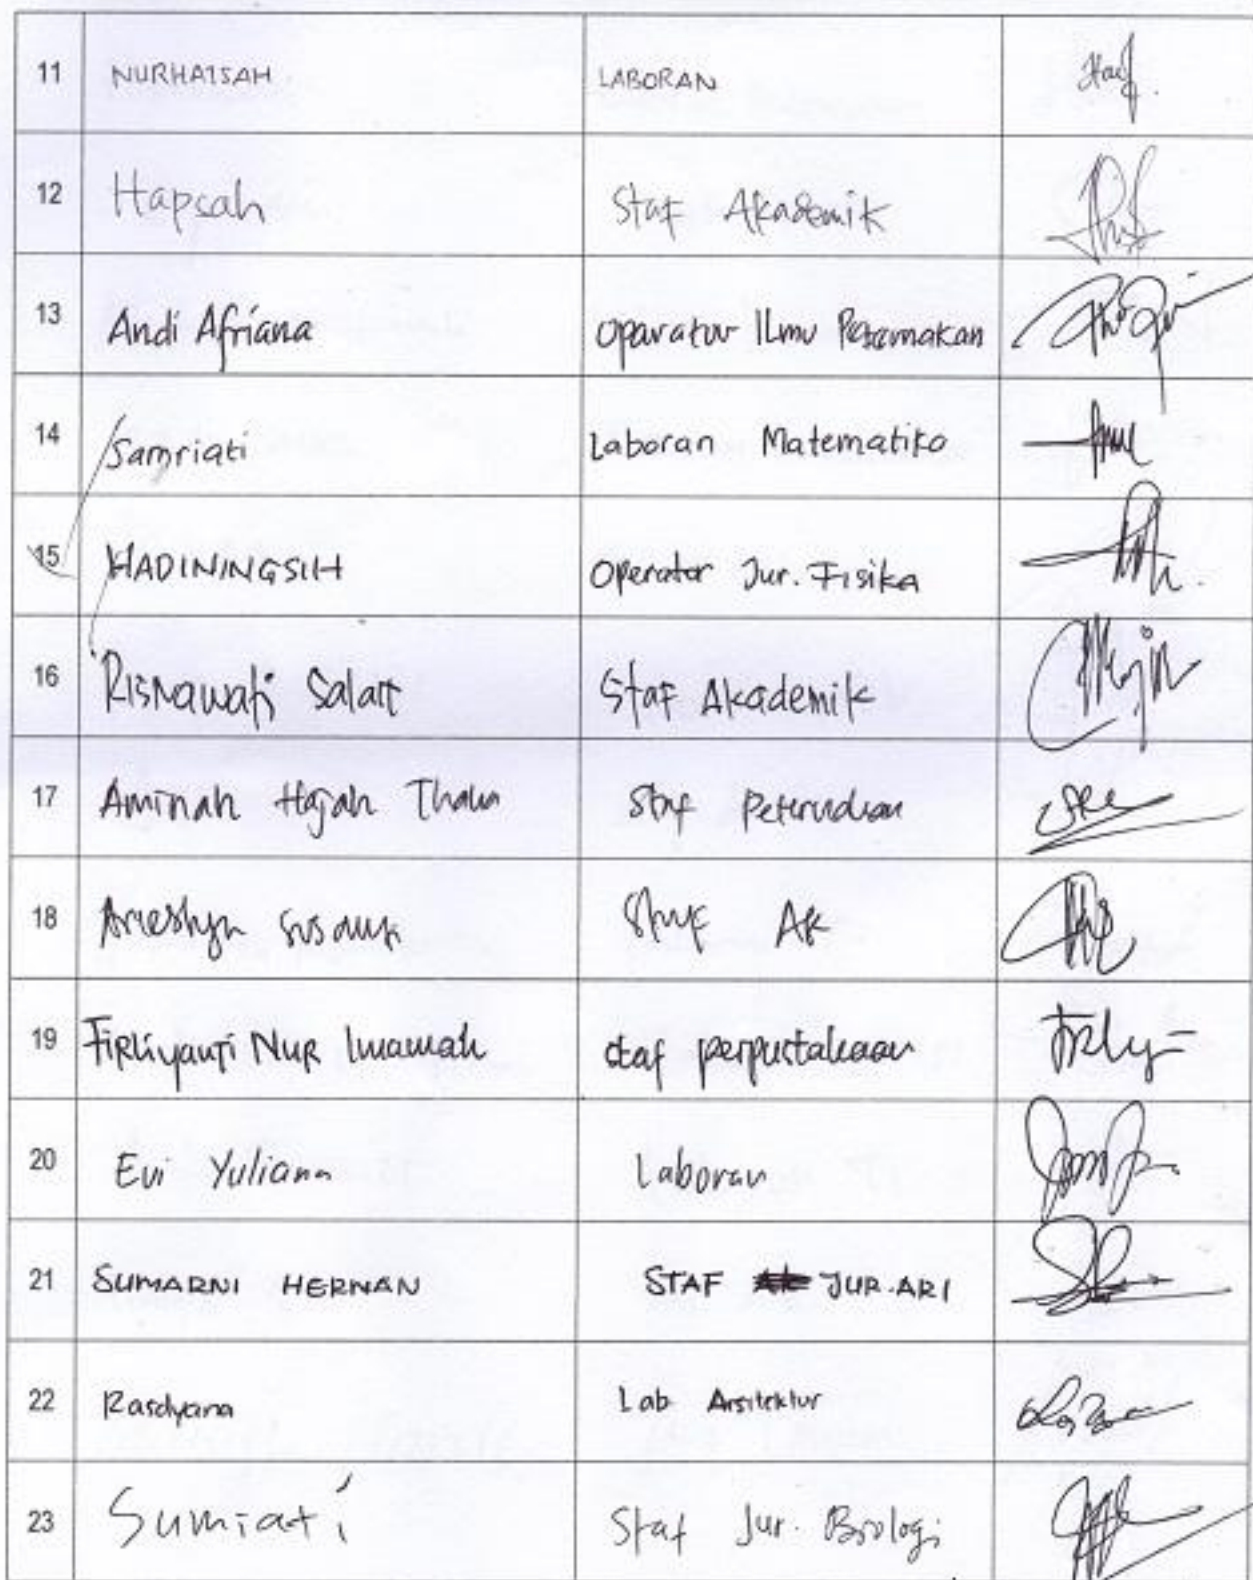 11 NURHAISAH LABORAN
12 Hapsah Staf Akademik
13 Andi Afriana Oparatur Ilmu Peternakan
14 Samriati Laboran Matematika
15 HADININGSIH Operator Jur. Fisika
16 Risnawati Salam Staf Akademik
17 Aminah Hajah Thaha Staf
18 Staf AK
19 Firliyanti Nur Imamah staf perpustakaan
20 Evi Yuliana Laboran
21 SUMARNI HERMAN STAF JUR.ARI
22 Rasdyana Lab Arsitektur
23 Sumiati Staf Jur. Biologi